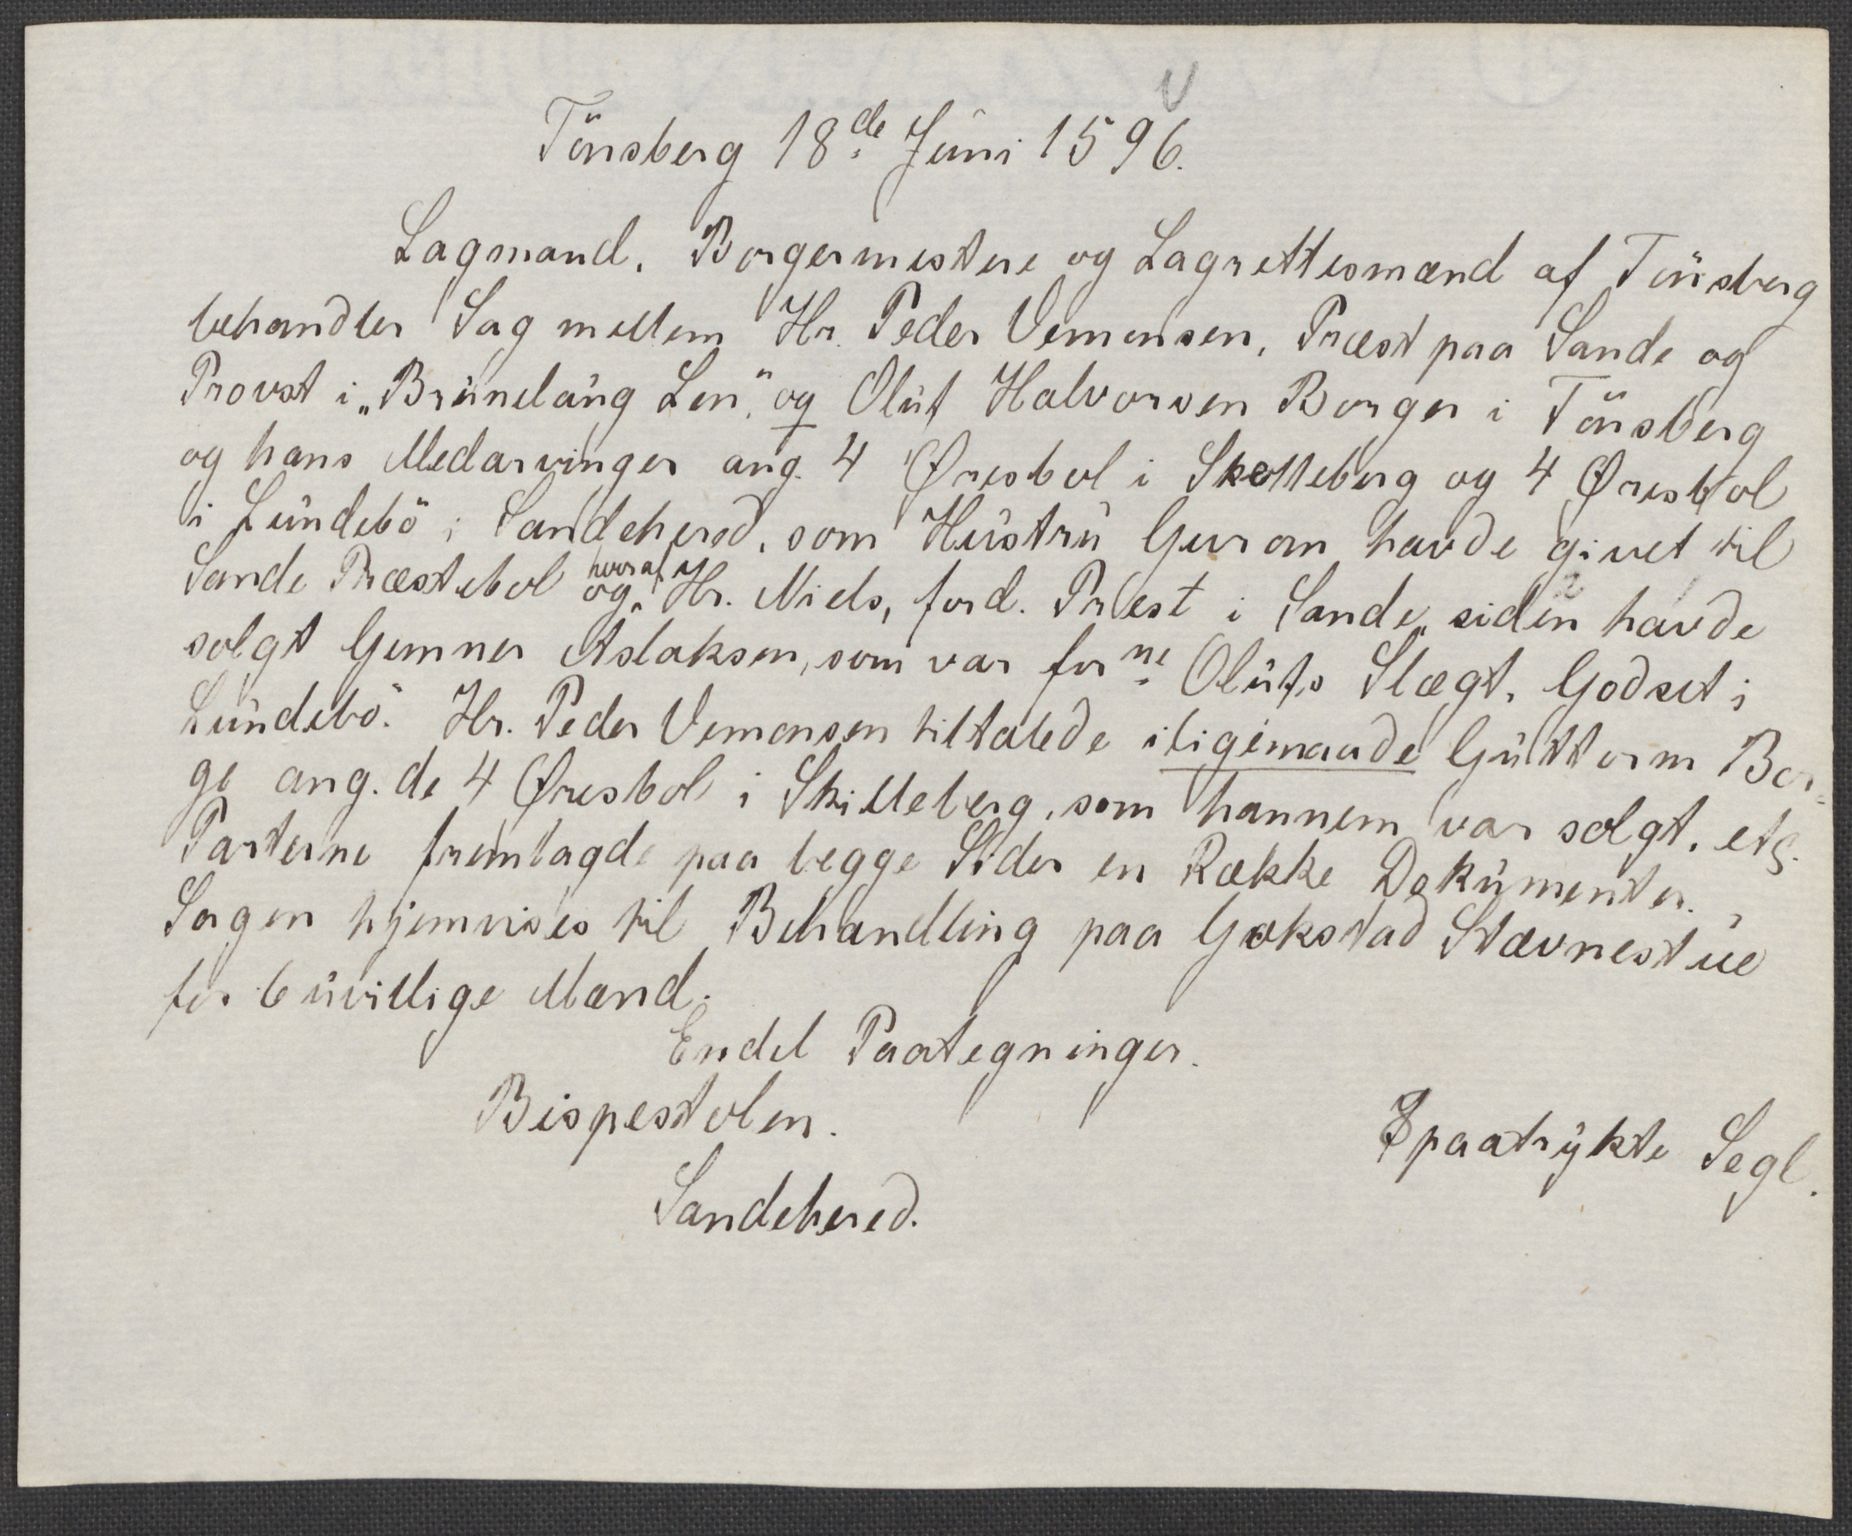 Tönsberg 18de Juni 1596.
Lagmand, Borgermestere og Lagrettesmænd af Tönsberg
behandler Sag mellem Hr. Peder Vemonsen, Præst paa Sande og
Provst i „Brunelaug Len“, og Oluf Halvorsen Borger i Tönsberg
og hans Medarvinger ang. 4 Øresbol i Skelleberg og 4 Øresbol
i Lundebö i Sandeherod, som Hustru Guron havde givet til
Sande Præstebol og hvoraf Hr. Niels, ford. Præst i Sande, siden havde
solgt Gunner Aslaksen, som var forne Olufs Slægt, Godset i
Lundebö. Hr. Peder Vemonsen tiltalede iligemaade Guttorm Bor-
ge ang. de 4 Øresbol i Skilleberg, som hannem var solgt, etc.
Parterne fremlagde paa begge Sider en Række Dokumenter.
Sagen hjemvises til Behandling paa Gokstad Stævnestue
for 6 uvillige Mænd.
Endel Paategninger.
Bispestolen.
paatrykte Segl.
Sandehered.